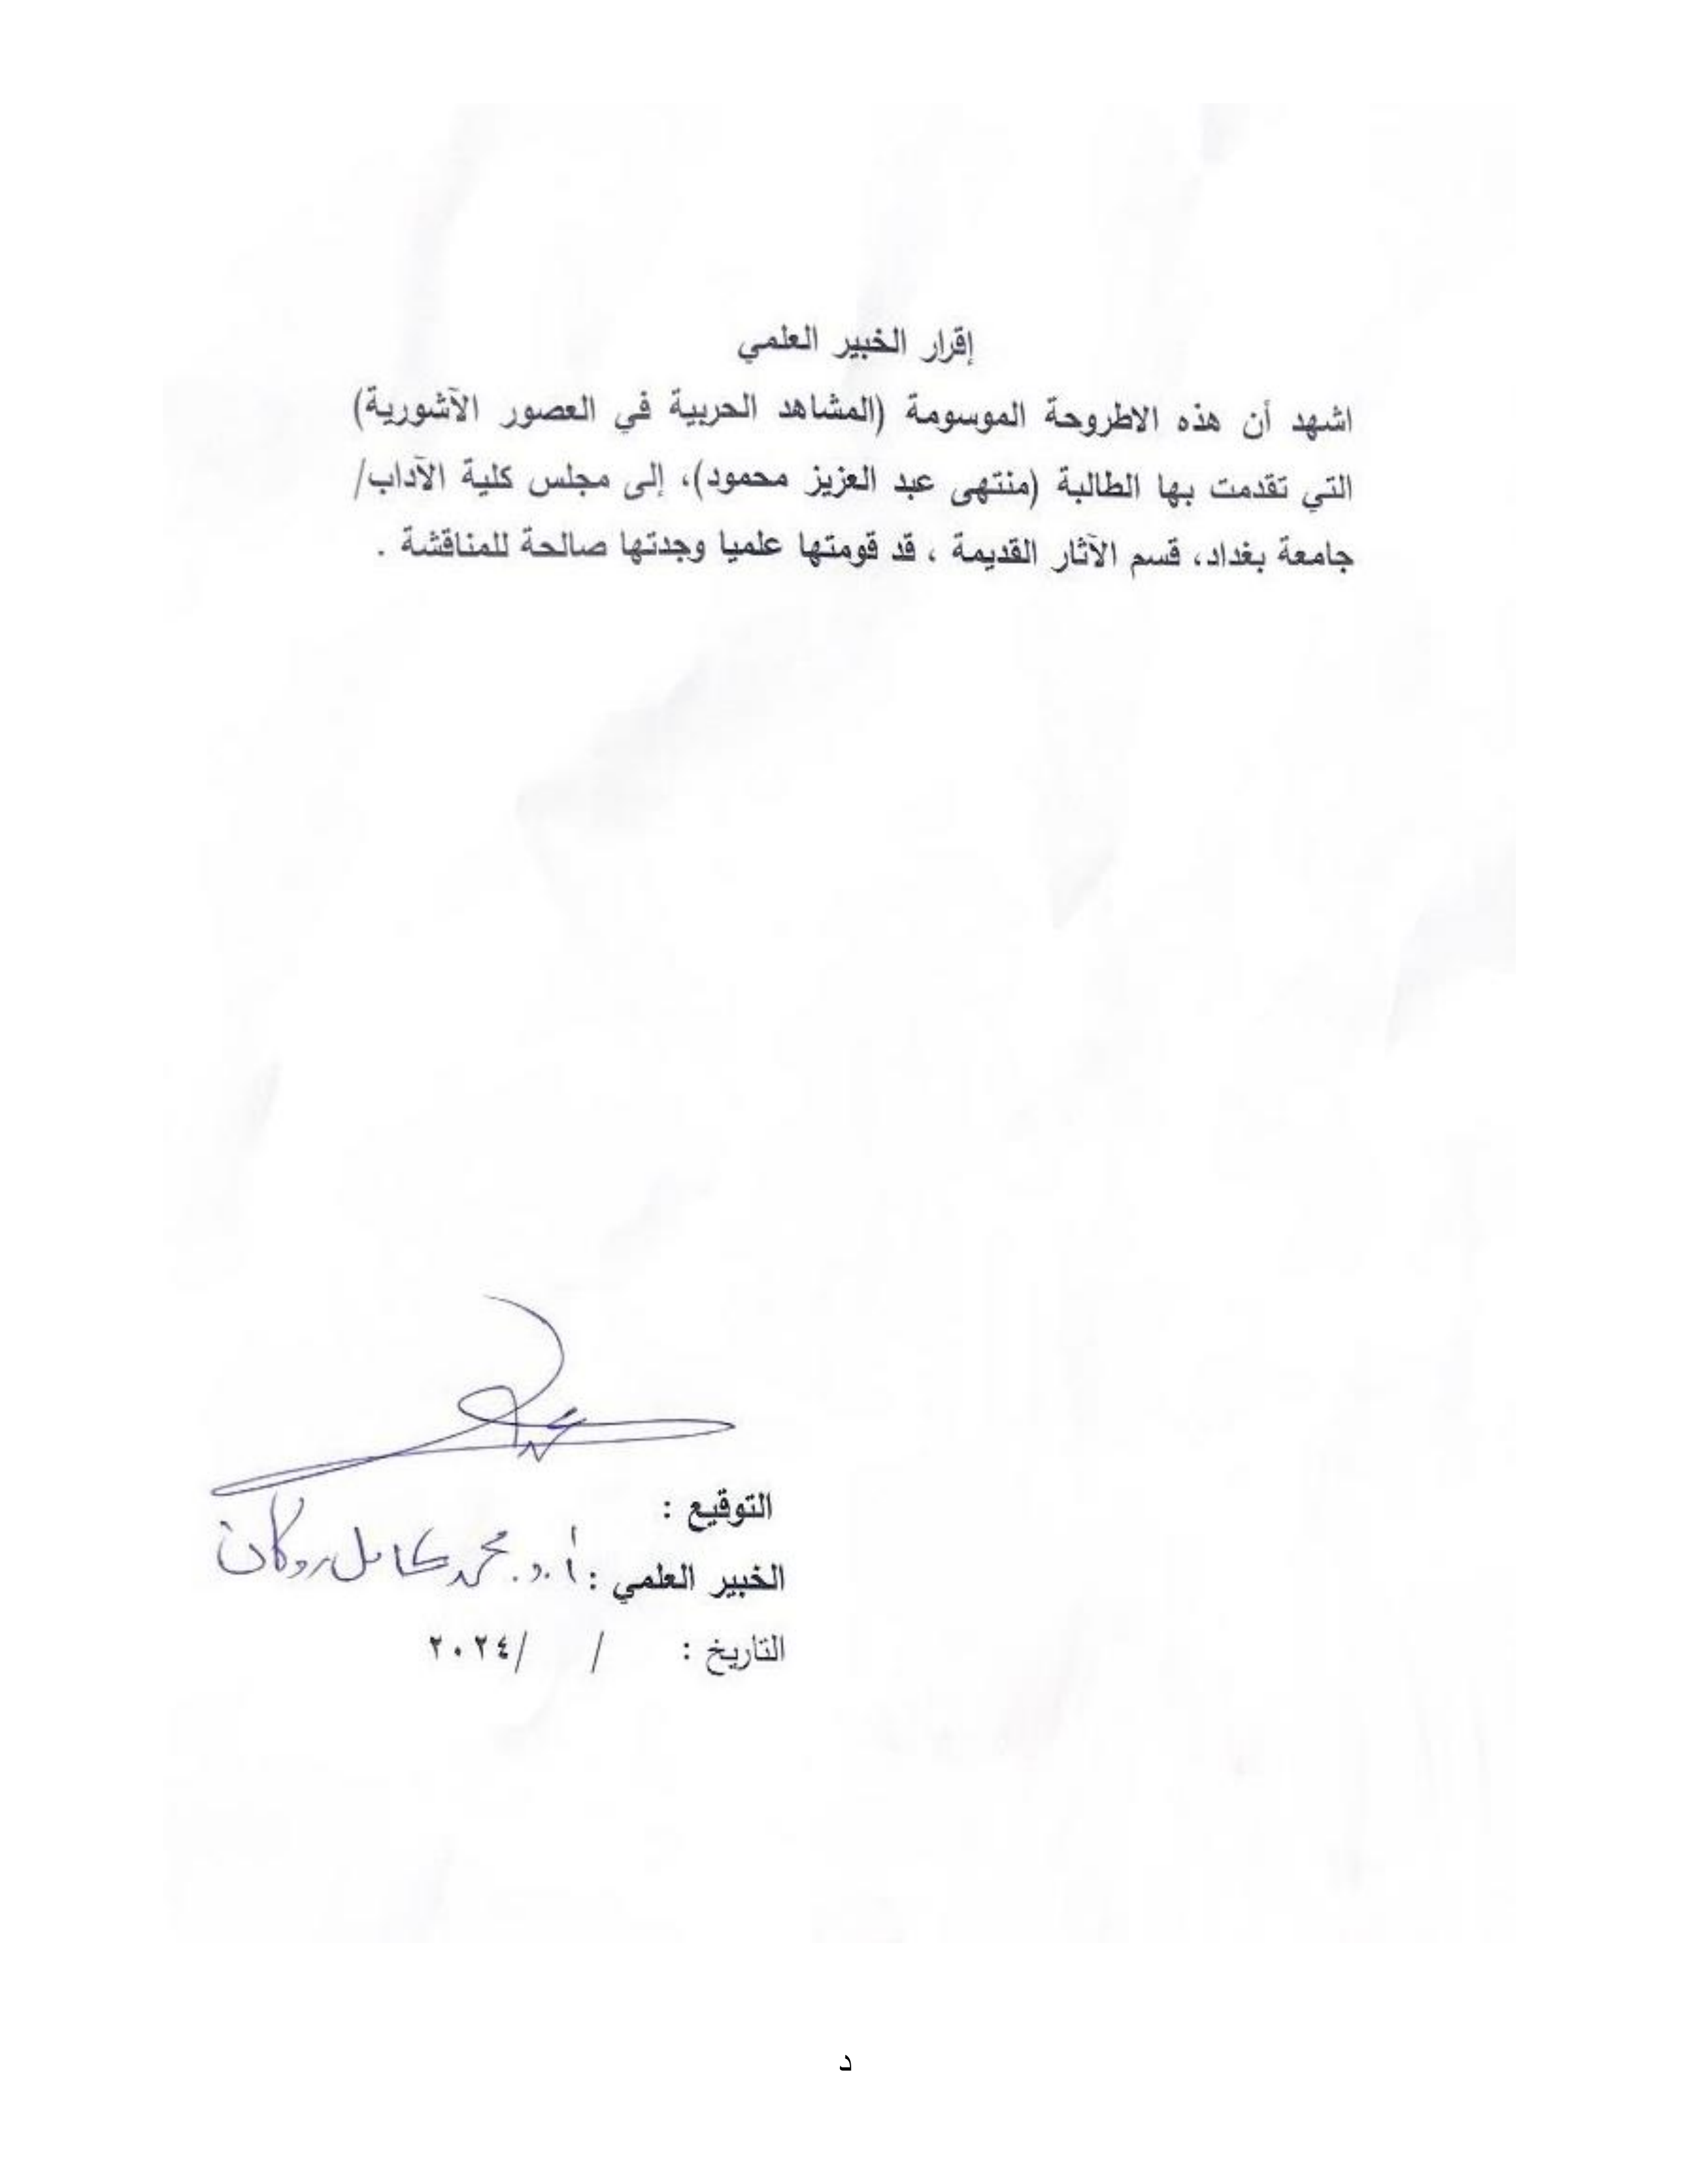 إقرار الخبير العلمي
اشهد أن هذه الاطروحة الموسومة (المشاهد الحربية في العصور الآشورية)
التي تقدمت بها الطالبة (منتهى عبد العزيز محمود)، إلى مجلس كلية الآداب/
جامعة بغداد، قسم الآثار القديمة ، قد قومتها علميا وجدتها صالحة للمناقشة .
التوقيع :
الخبير العلمي : أ.د. محمد كامل روكان
التاريخ : / /٢٠٢٤
د